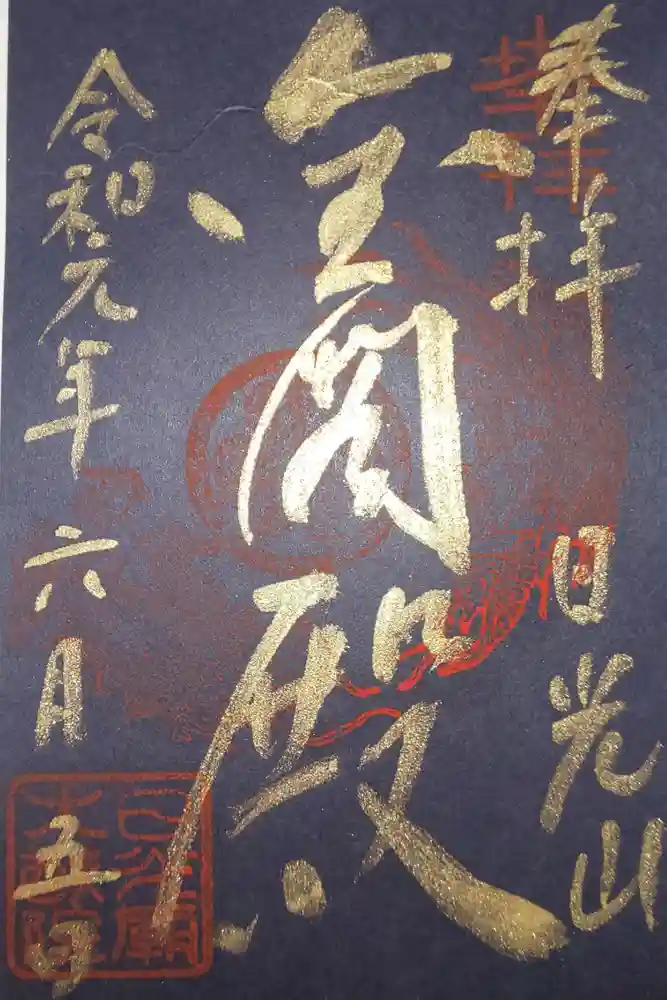 奉拝
日光山
金閣殿
令和元年六月五日